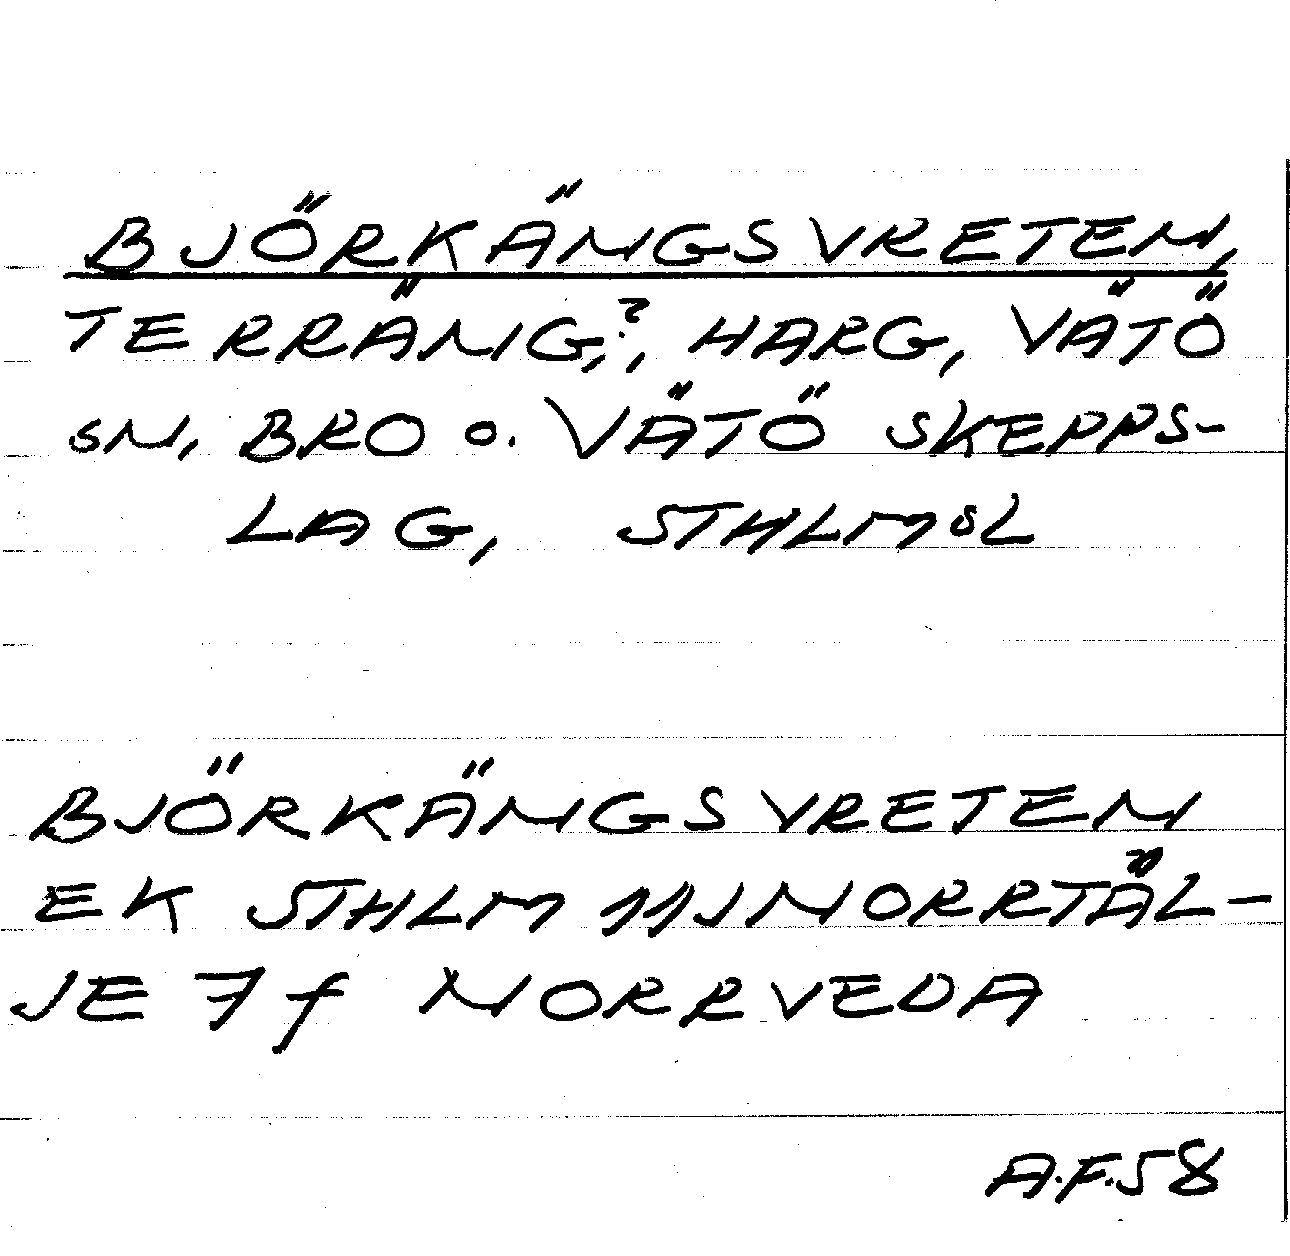 BJÖRKÄNGSVRETEN,
TERRÄNG,?, HARG, VÄTÖ
SN, BRO o. VÄTÖ SKEPPS-
LAG, STHLMSL
BJÖRKÄNGSVRETEN
EK STHLM 11J NORRTÄL-
JE 7f NORRVEDA
A.F.58